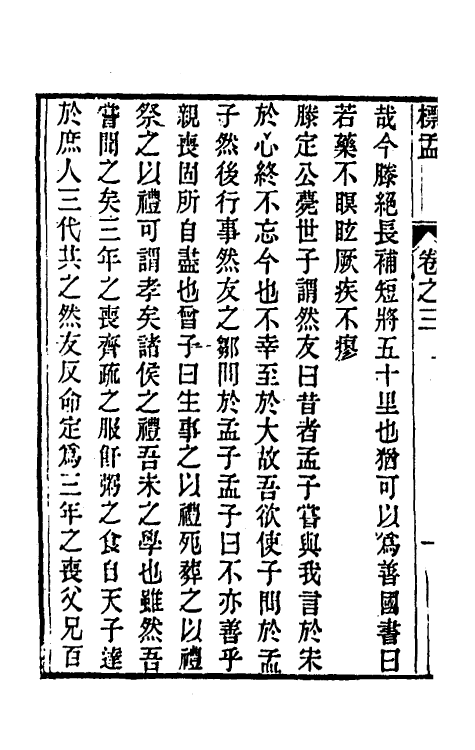 標孟
卷之三
一
哉今滕絕長補短將五十里也猶可以爲善國書曰
若藥不瞑眩厥疾不瘳
滕定公薨世子謂然友曰昔者孟子嘗與我言於宋
於心終不忘今也不幸至於大故吾欲使子問於孟
子然後行事然友之鄒問於孟子孟子曰不亦善乎
親喪固所自盡也曾子曰生事之以禮死葬之以禮
祭之以禮可謂孝矣諸侯之禮吾未之學也雖然吾
嘗聞之矣三年之喪齊疏之服飦粥之食自天子達
於庶人三代共之然友反命定爲三年之喪父兄百